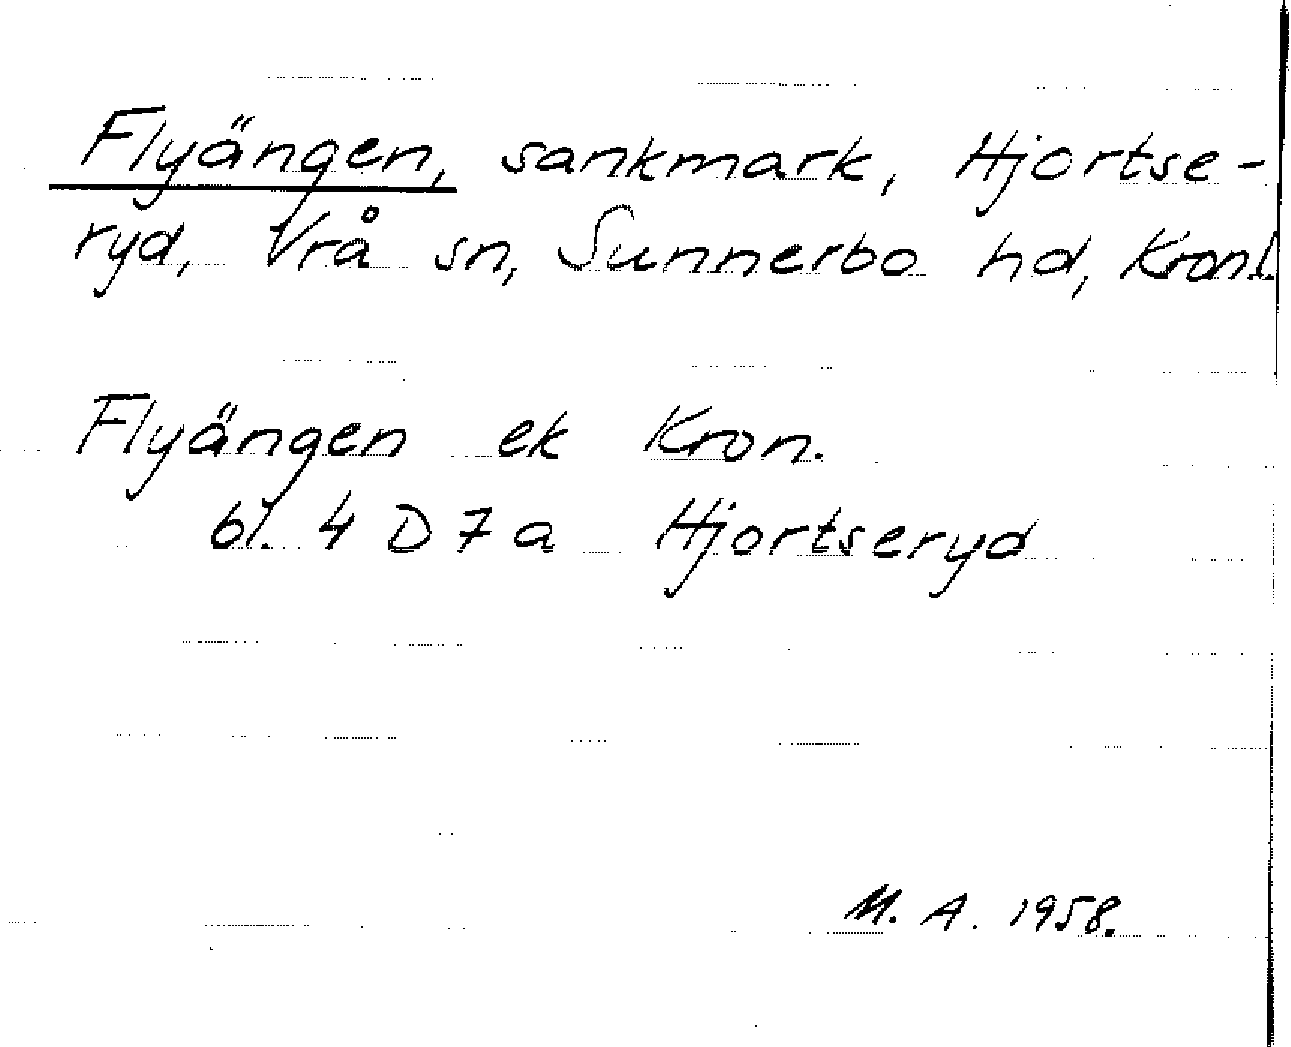 Flyängen, sankmark, Hjortse-
ryd, Vrå sn, Sunnerbo hd, Kronl.
Flyängen ek Kron.
bl. 4 D 7 a Hjortseryd
M. A. 1958.